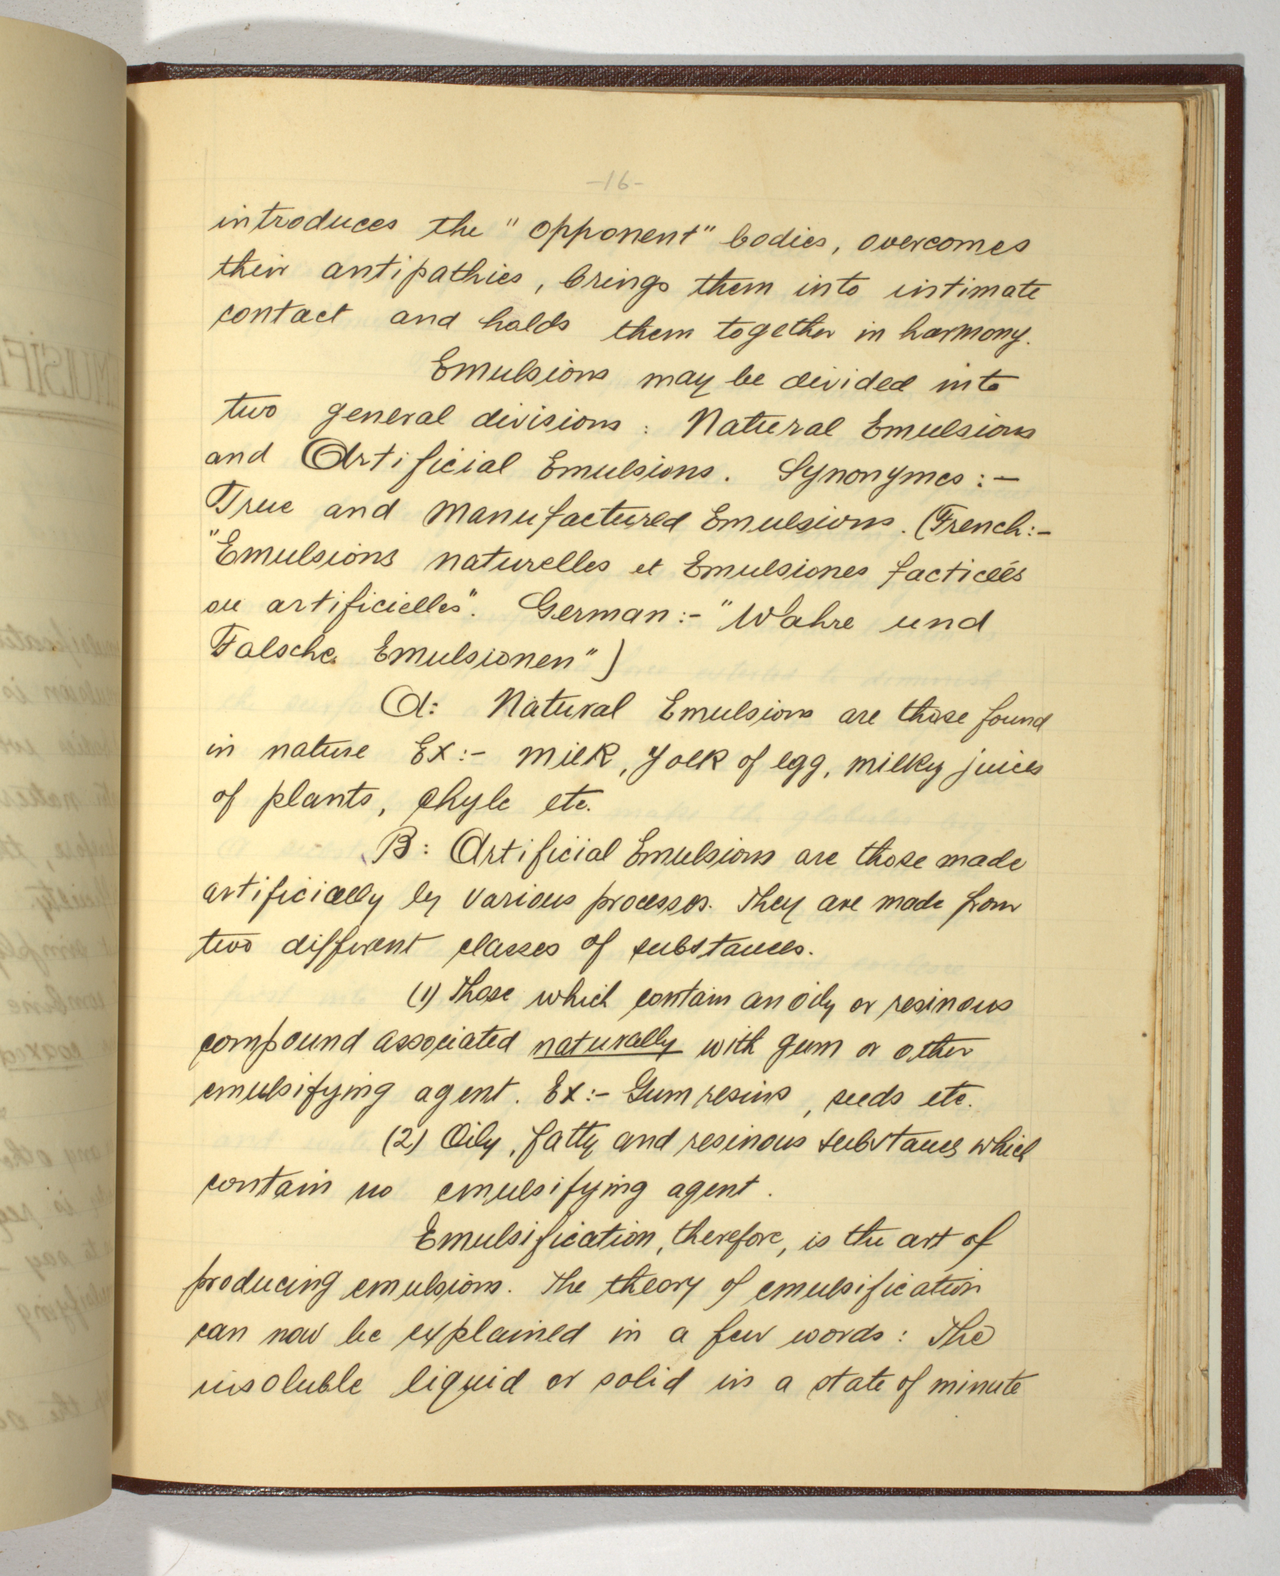 -16-
introduces the "opponent" bodies, overcomes
their antipathies, brings them into intimate
contact and holds them together in harmony.
Emulsions may be divided into
two general divisions: Natural Emulsions
and Artificial Emulsions. Synonymes:-
True and manufactured Emulsions. (French:-
"Emulsions naturelles et Emulsiones facticeés
ou artificielles". German:- "Wahre und
Falsche Emulsionen")
A: Natural Emulsions are those found
in nature Ex:- milk, yolk of egg, milky juices
of plants, chyle etc.
B: Artificial Emulsions are those made
artificially by various processes. They are made from
two different classes of substances.
(1) Those which contain an oily or resinous
compound associated naturally with gum or other
emulsifying agent. Ex:- Gum resins, seeds etc.
(2) Oily, fatty and resinous substances which
contain no emulsifying agent.
Emulsification, therefore, is the art of
producing emulsions. The theory of emulsification
can now be explained in a few words: The
insoluble liquid or solid in a state of minute